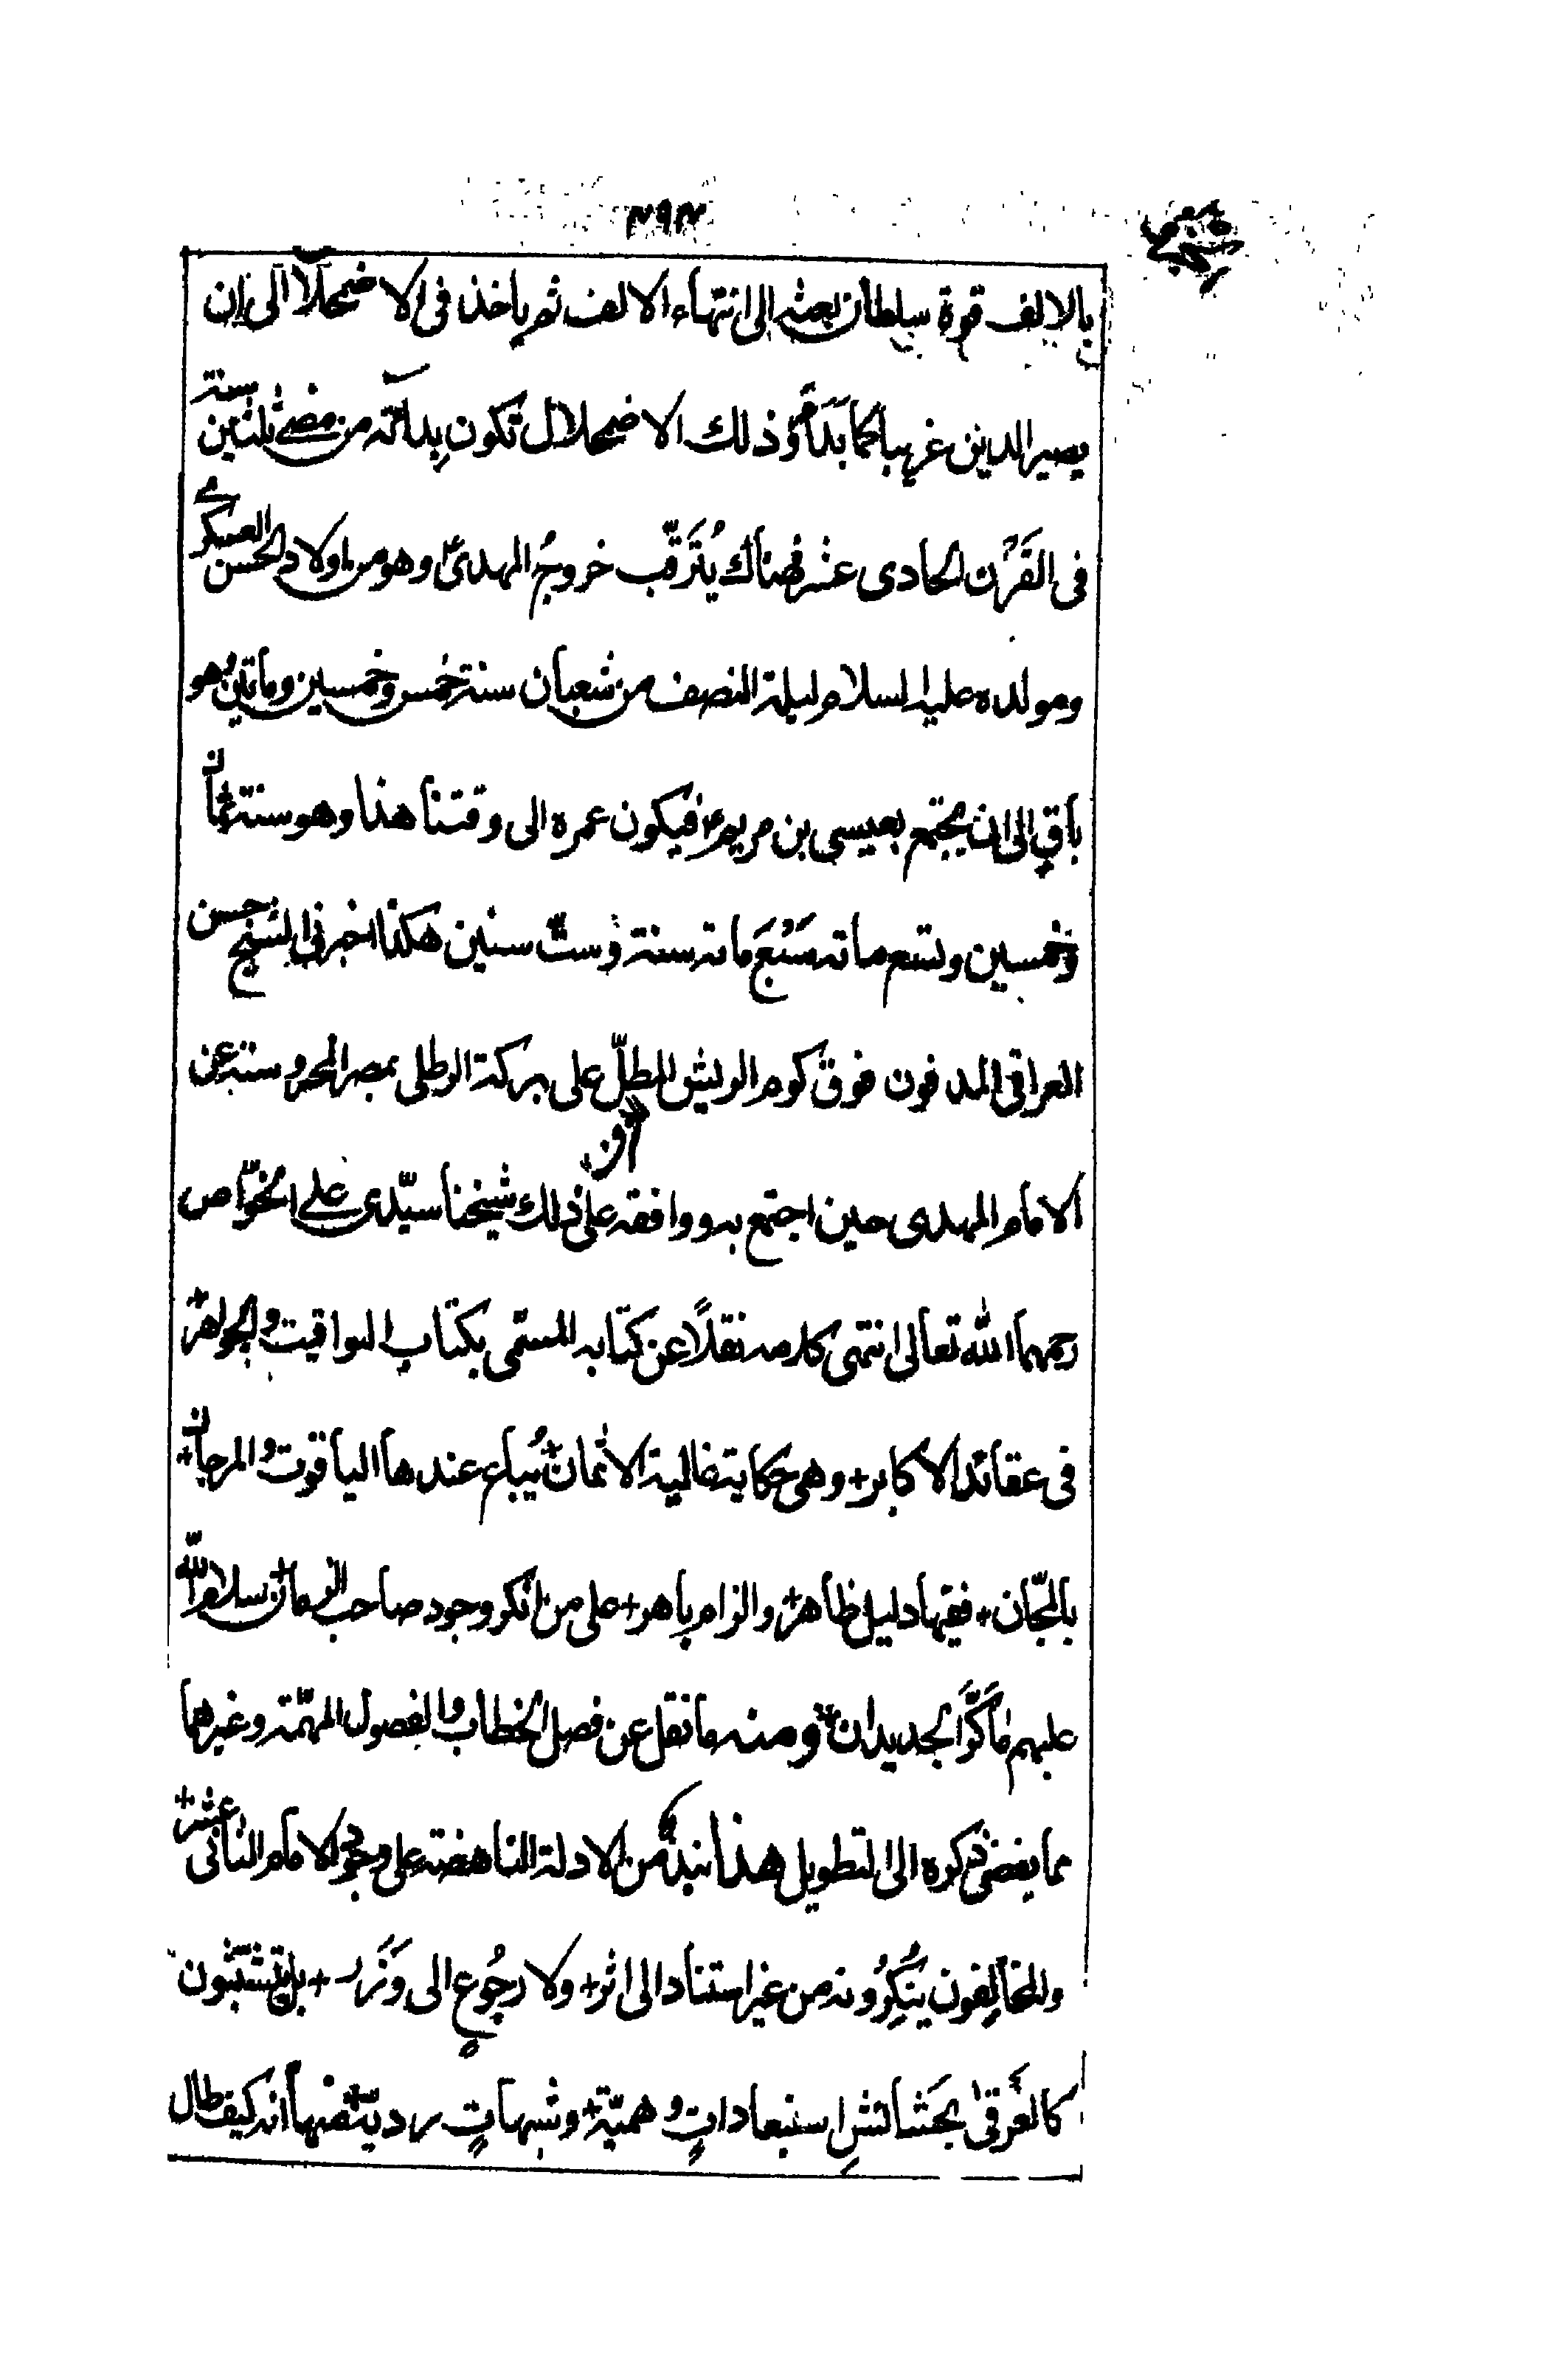 ٢٩٣
بالالف قوة سلطان بعثه الى انتهاء الالف ثم ياخذ فى الاضمحلال الى ان
يصير الدين غريبا كما بَدَأ وذلك الاضمحلال تكون بدأته من مضے ثلثين سنة
فى القَرْن الحادى عشر فهناك يُتَرَقّب خروجُ المهدىّ وهو من اولاد الحسن العسكرے
ومولده عليه السلام ليلة النصف من شعبان سنة خمس وخمسين ومأتين وهو
باقٍ الى ان يجتمع بعيسى بن مريمؑ فيكون عمره الى وقتنا هذا وهو سنة ثمان
وخمسين وتسع مائه سَبْعَ مائه سنة وستّ سنين هكذا اخبرنى الشيخ حسن
العراقى المدفون فوق كوم الريش المطلّ على بركة الرطلى بمصر المحروسة عن
الامام المهدى حين اجتمع به ووافقه على ذلك شيخنا سيّدى علے الخوّاص
رحمهما الله تعالى انتهى كلامه نقلًا عن كتابه المسمّى بكتاب اليواقيت والجواهر+
فى عقائد الاكابر+ وهى حكاية غالية الاثمان+ يُباع عندها الياقوت والمرجان+
بالمجّان+ ففيها دليل ظاهر+ والزام باهر+ على من انكر وجود صاحب الزمان+ سلام الله
عليهم ما كَرَّ الجديدان+ ومنه ما نقل عن فصل الخطاب والفصول المهمّة وغيرهما
مما يفضى ذكره الى التطويل هذا نبذٌ من الادلة الناهضة على وجود الامام الثانى عشر+
والمخالِفون يُنكِرُونه من غير استناد الى اثر+ ولا رجُوعٍ الى وَزَر+ بل يتشبّثون
كالغَرقى بحَشائشِ استبعاداتٍ وهميّة+ وشبهاتٍ رديّة+ منها انه كيف طال